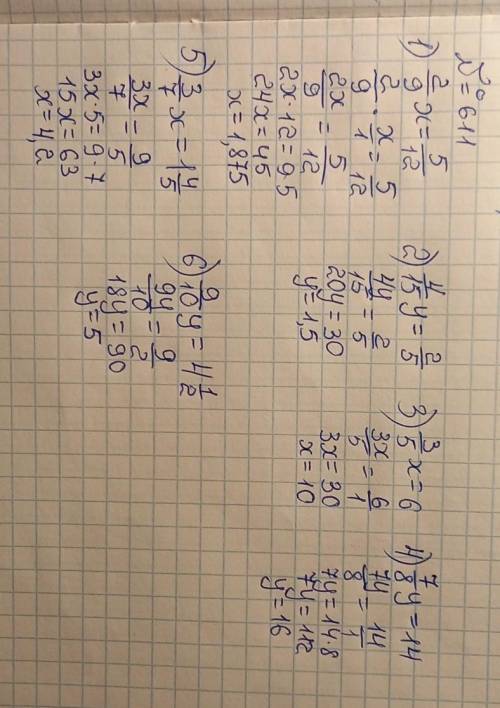 №611
1) 2/9 x = 5/12
2/9 · x/1 = 5/12
2x/9 = 5/12
2x·12=9·5
24x=45
x=1,875
2) 4/15 y = 2/5
4y/15 = 2/5
20y=30
y=1,5
3) 3/5 x = 6
3x/5 = 6/1
3x=30
x=10
4) 7/8 y = 14
7y/8 = 14/1
7y=14·8
7y=112
y=16
5) 3/7 x = 1 4/5
3x/7 = 9/5
3x·5=9·7
15x=63
x=4,2
6) 9/10 y = 4 1/2
9y/10 = 9/2
18y=90
y=5